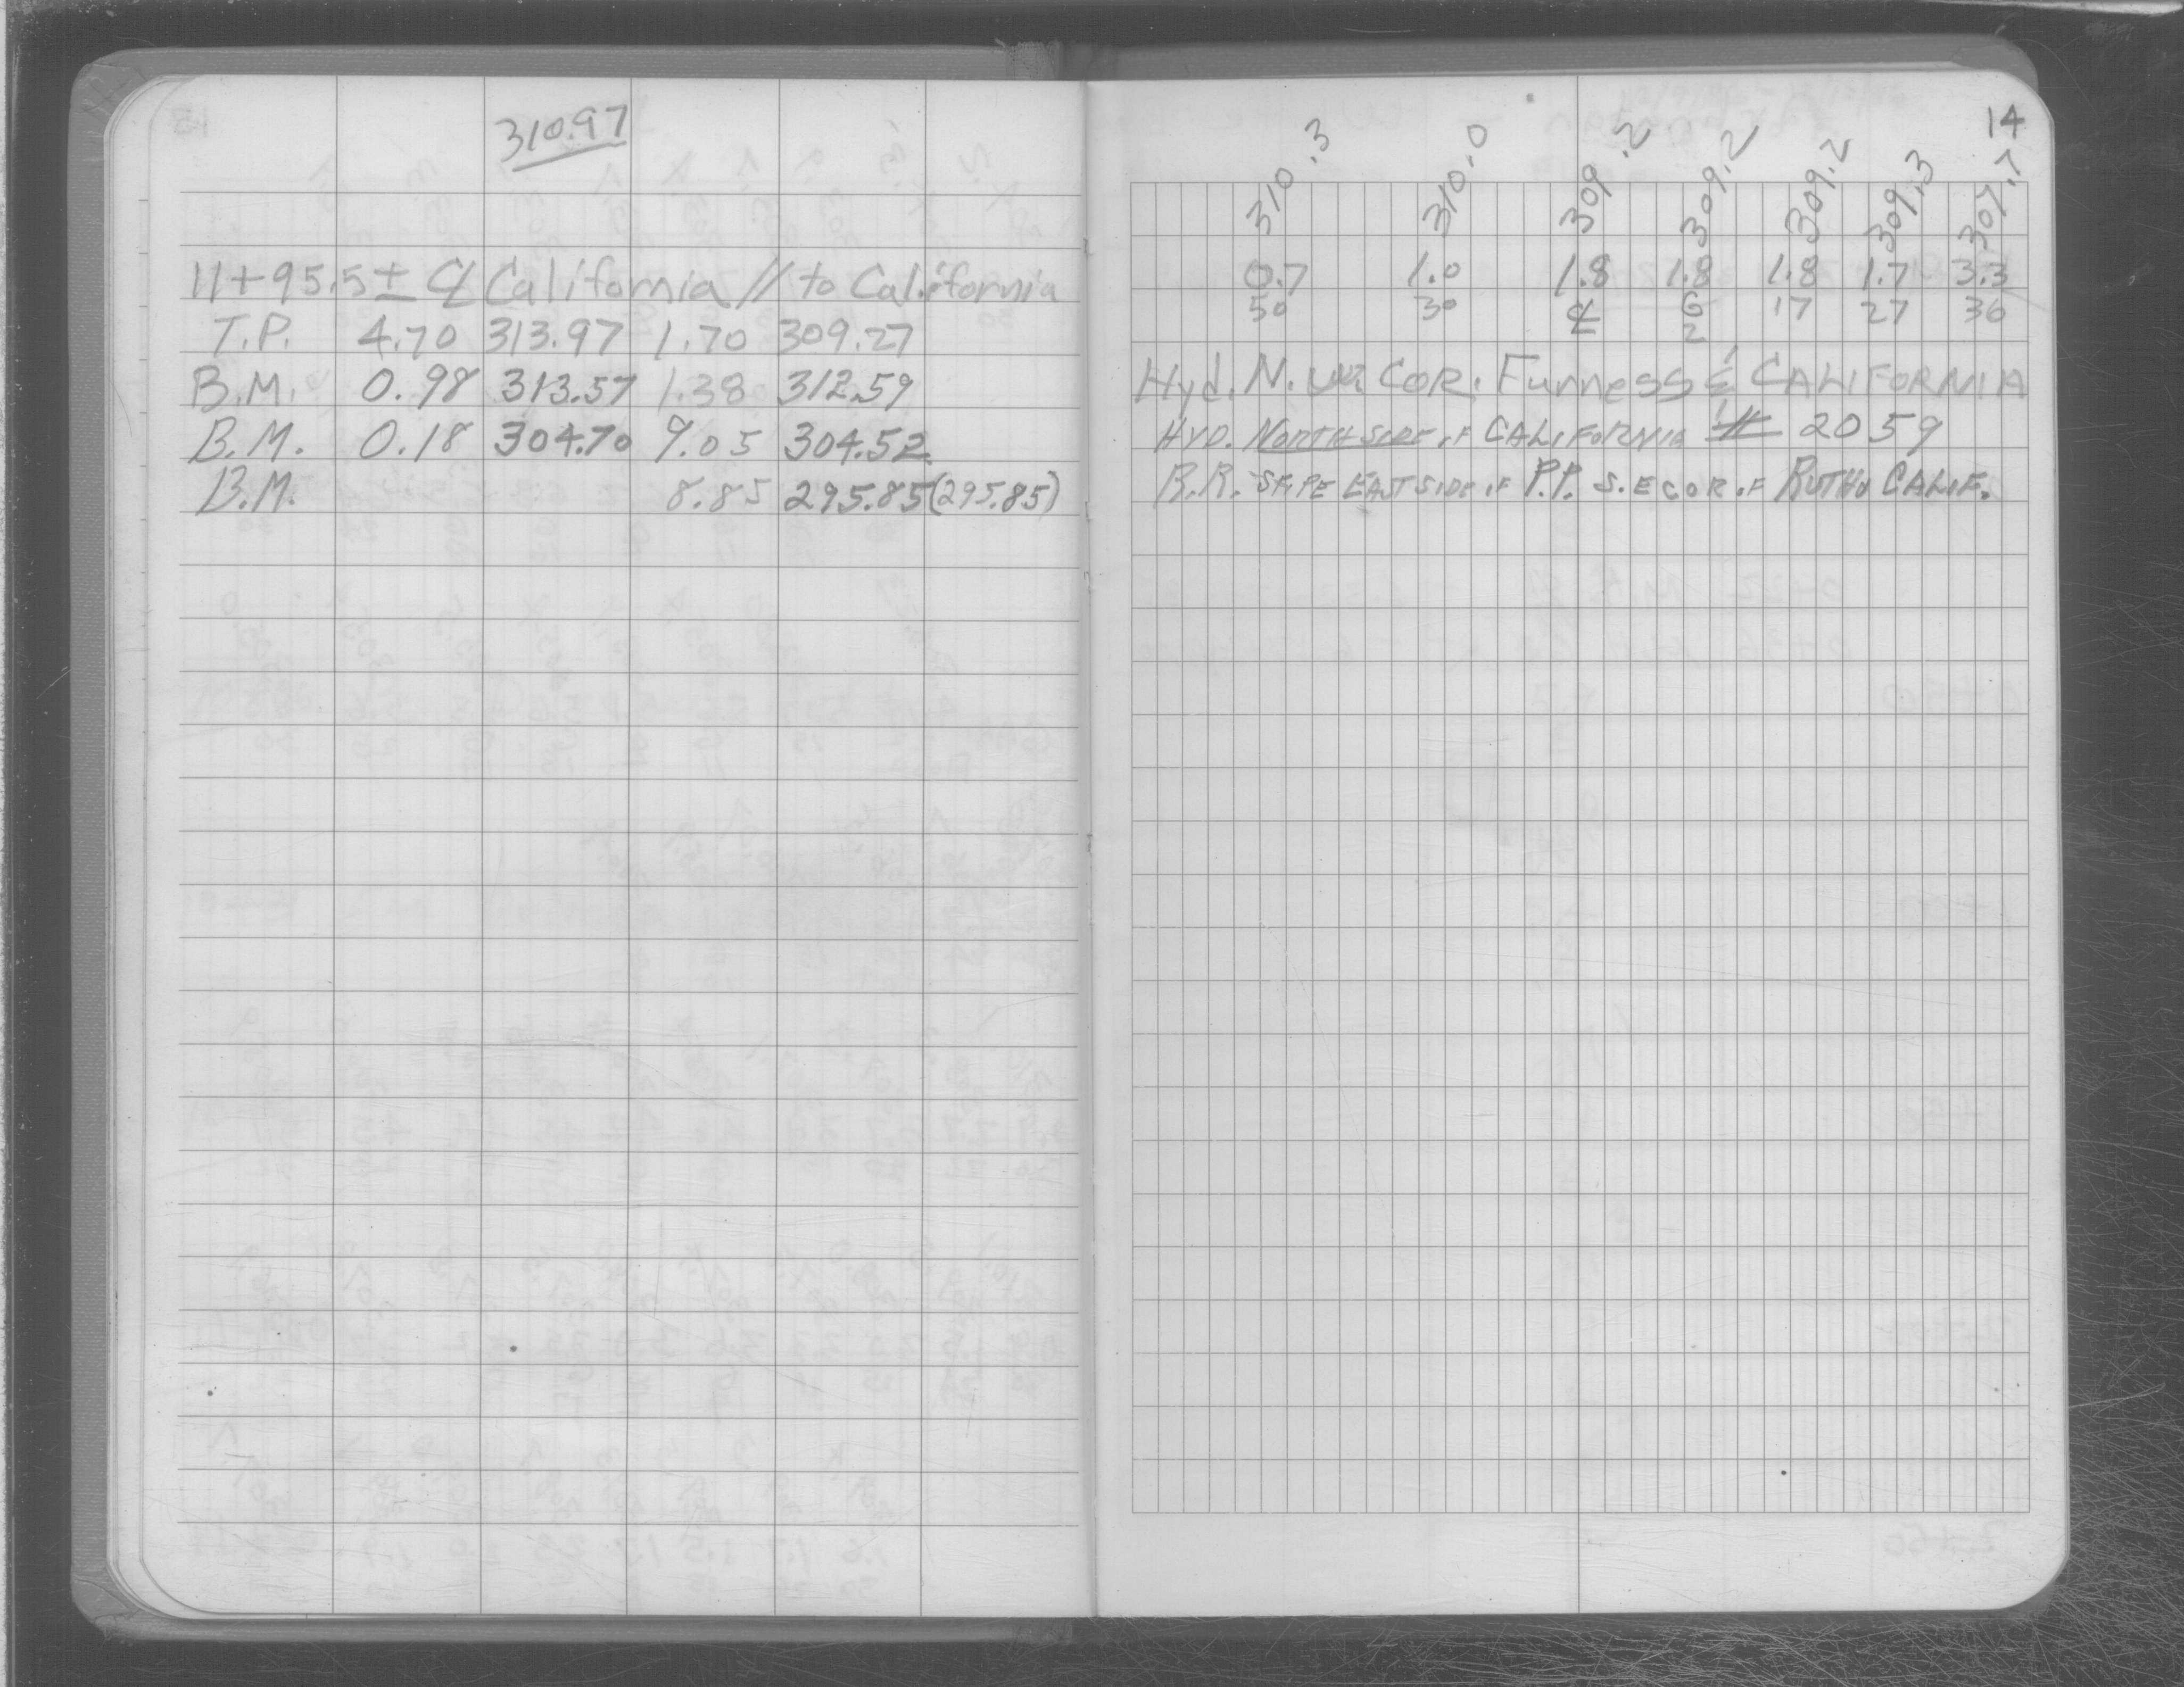 310.97
11+95.5± ℄ California // to California
T.P. 4.70 313.97 1.70 309.27
B.M. 0.98 313.57 1.38 312.59
B.M. 0.18 304.70 9.05 304.52
B.M. 8.85 295.85 (295.85)
14
310.3 310.0 309.2 309.2 309.2 309.3 307.7
0.7 1.0 1.8 1.8 1.8 1.7 3.3
50 30 ℄ G 17 27 36
2
Hyd. N. COR. Furness & CALIFORNIA
HYD. NORTH SIDE OF CALIFORNIA # 2059
R.R. SPIPE EAST SIDE OF P.P. S.E COR OF RUTH & CALIF.